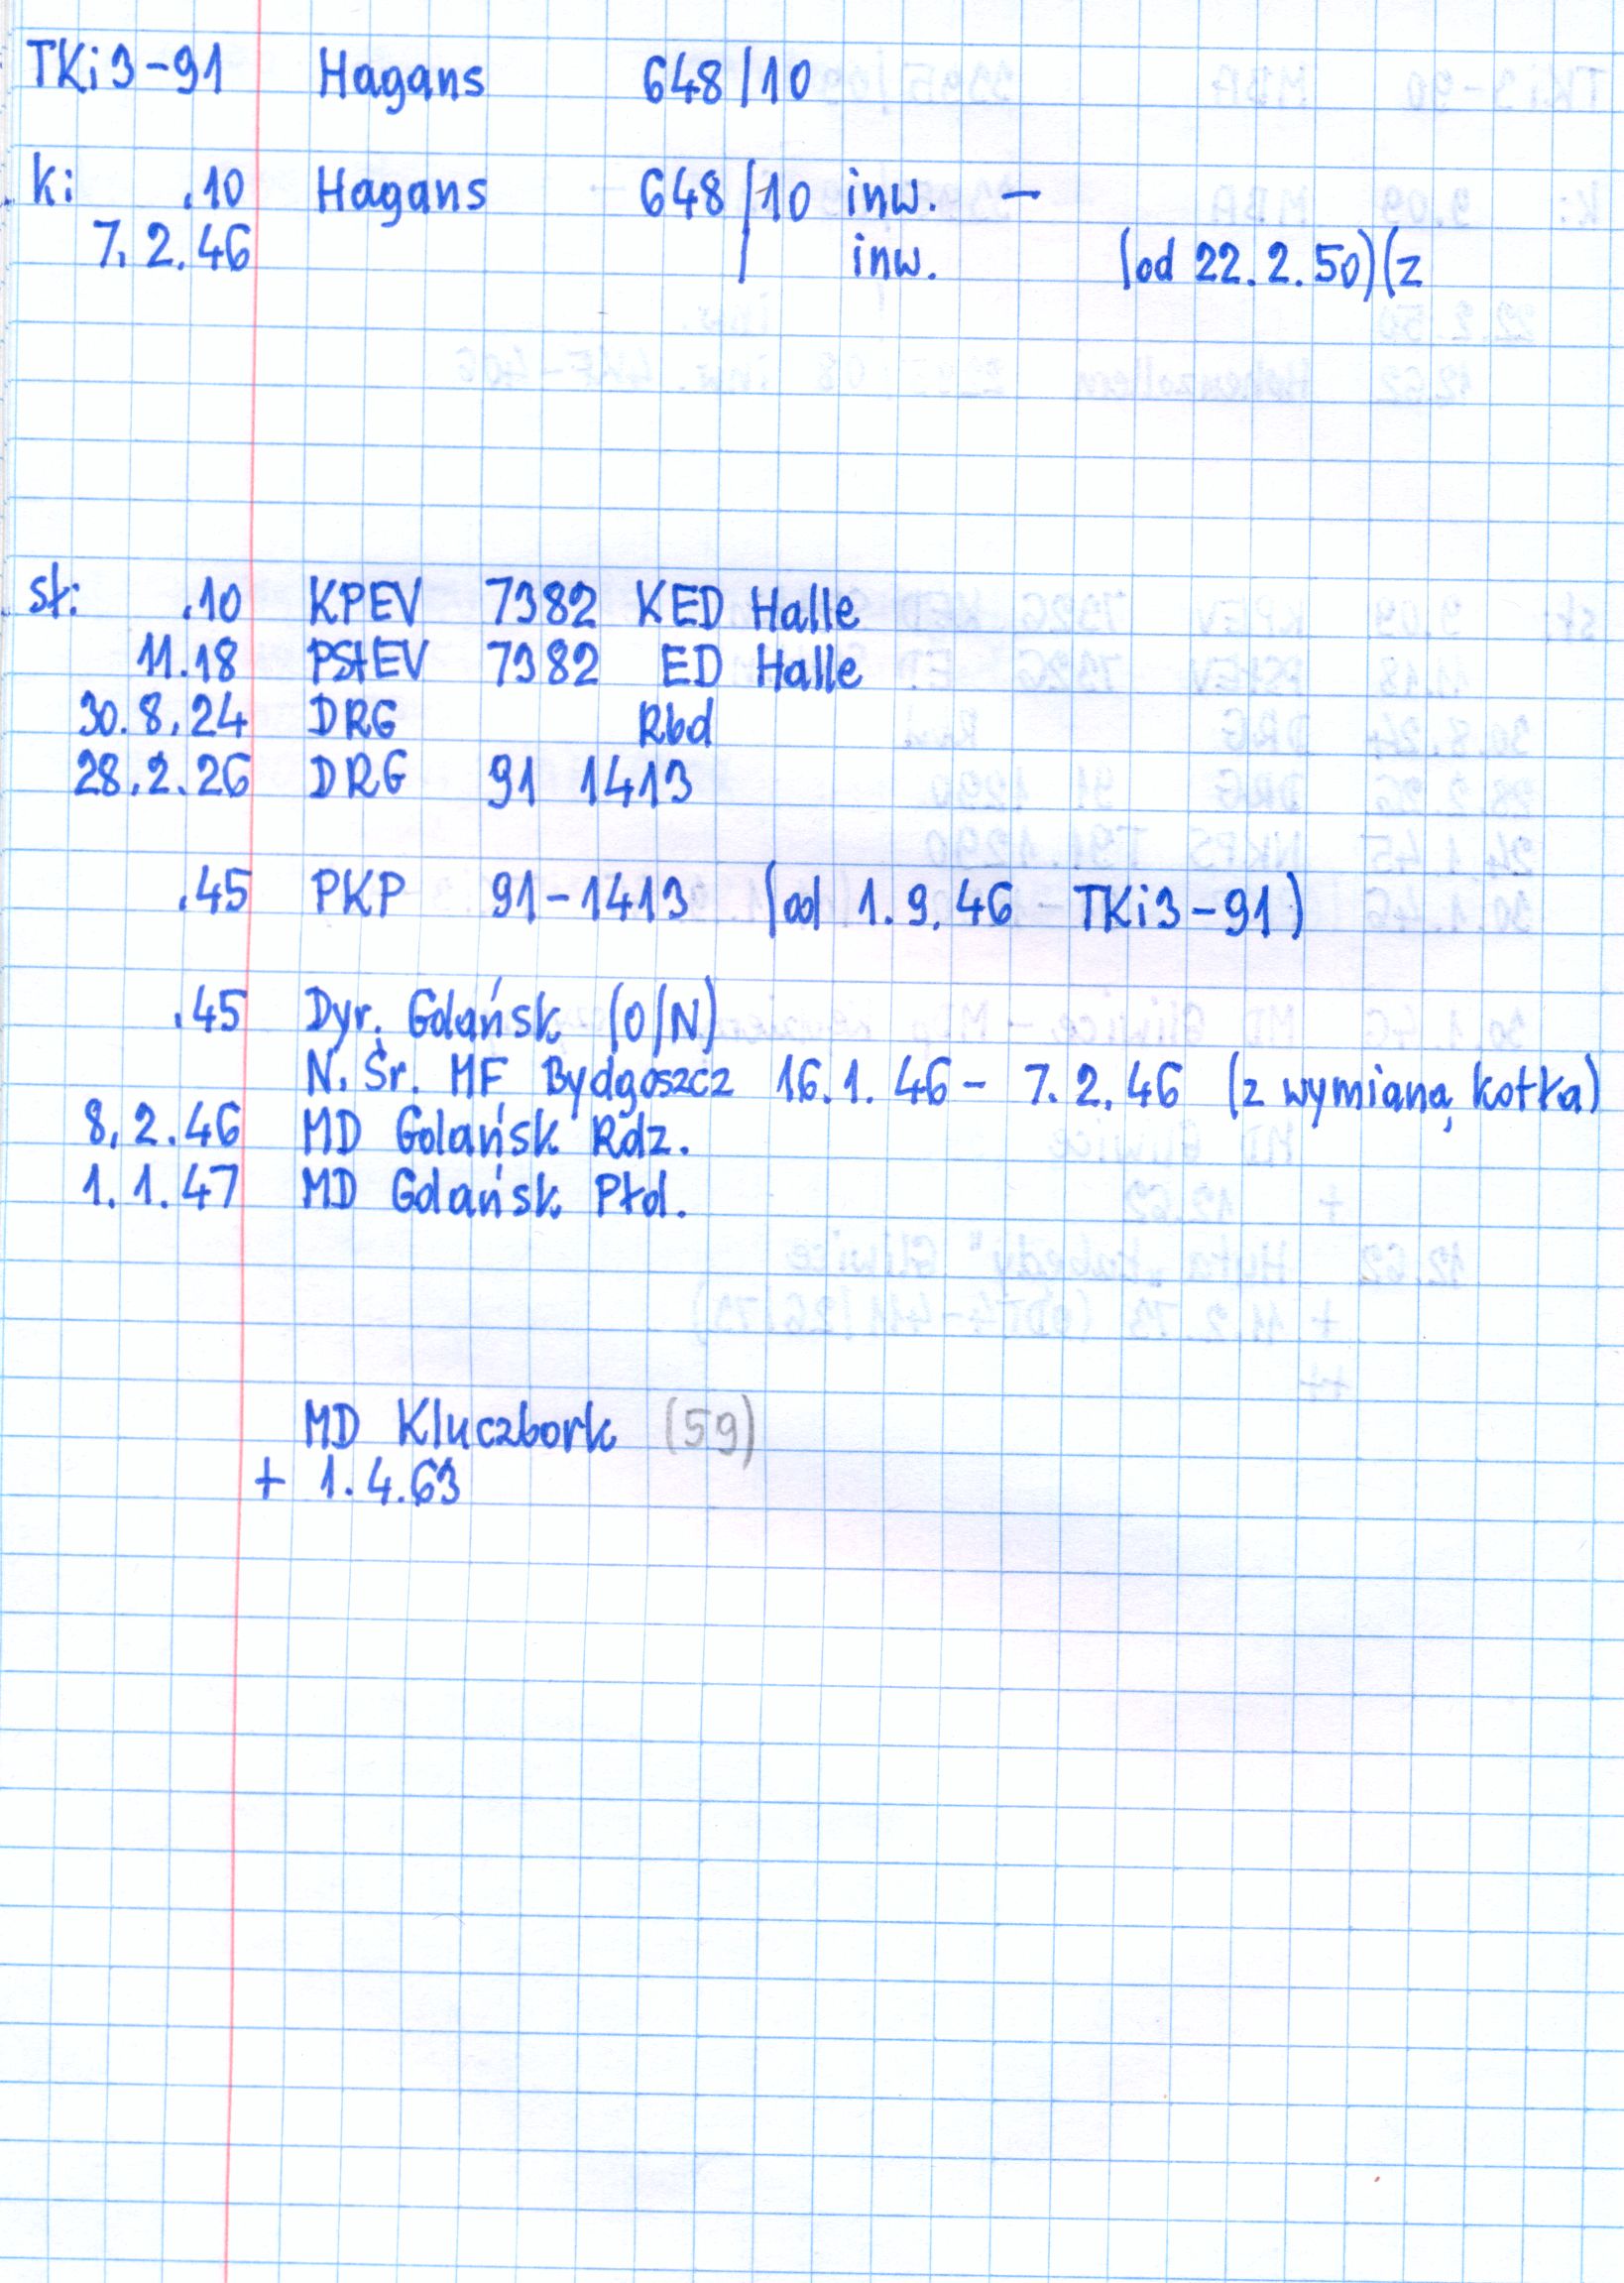 TKi3-91 Hagans 648/10
k: .10 Hagans 648/10 inw. -
7.2.46 / inw. (od 22.2.50)(z
st: .10 KPEV 7382 KED Halle
11.18 PStEV 7382 ED Halle
30.8.24 DRG Rbd
28.2.26 DRG 91 1413
.45 PKP 91-1413 (od 1.9.46 TKi3-91)
.45 Dyr. Gdańsk (O/N)
N. Śr. MF Bydgoszcz 16.1.46 - 7.2.46 (z wymianą kotła)
8.2.46 MD Gdańsk Rdz.
1.1.47 MD Gdańsk Płd.
MD Kluczbork (59)
+ 1.4.63